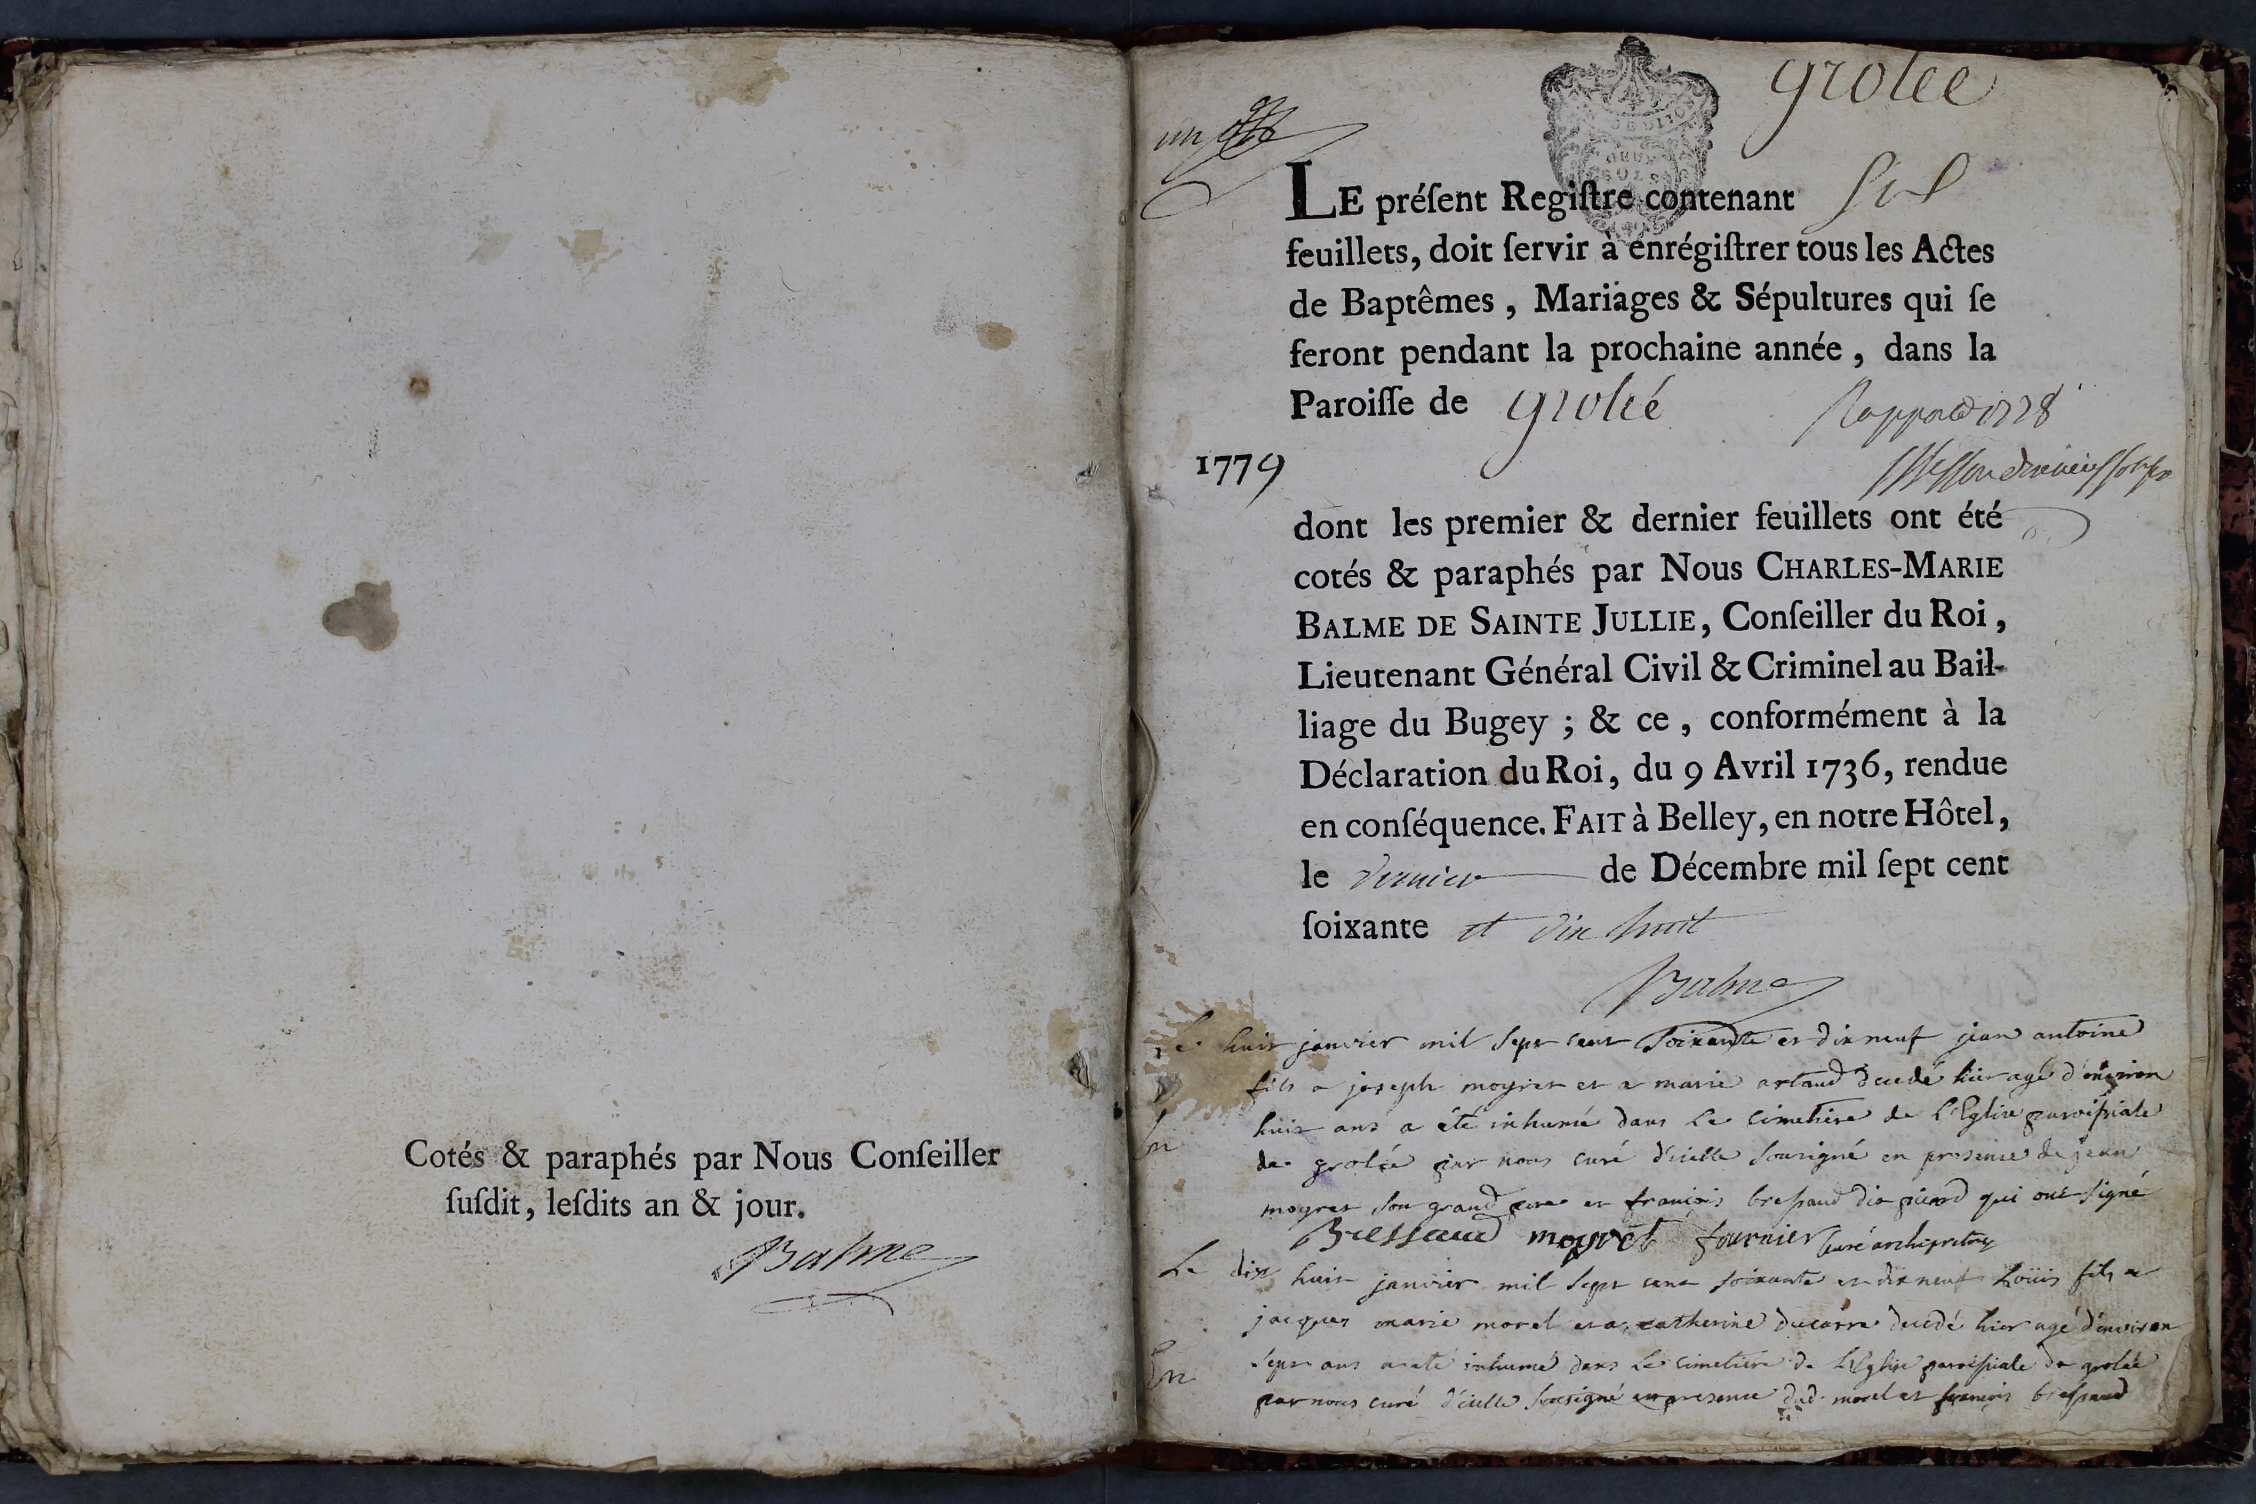 Cotés & paraphés par Nous Conſeiller
ſuſdit, leſdits an & jour.
Balme
grolee
un
DEUX
SOLS
LE préſent Regiſtre contenant six
feuillets, doit ſervir à enrégiſtrer tous les Actes
de Baptêmes, Mariages & Sépultures qui ſe
feront pendant la prochaine année, dans la
Paroiſſe de groleé
1779
dont les premier & dernier feuillets ont été
cotés & paraphés par Nous CHARLES-MARIE
BALME DE SAINTE JULLIE, Conſeiller du Roi,
Lieutenant Général Civil & Criminel au Bail-
liage du Bugey ; & ce, conformément à la
Déclaration du Roi, du 9 Avril 1736, rendue
en conſéquence. FAIT à Belley, en notre Hôtel,
le dernier de Décembre mil ſept cent
ſoixante et dix huit
Balme
Le huit janvier mil sept cent soixante et dix neuf jean antoine
fils a joseph moyret et a marie artaud decedé hier agé d'environ
huit ans a été inhumé dans le cimetiere de l'Eglise paroissiale
de groleé par nous curé d'icelle soussigné en presence de jean
moyret son grand pere et françois bressaud dit picard qui ont signé
Bressaud moyret fournier curé archipretre
Le dix huit janvier mil sept cent soixante et dix neuf Loüis fils a
jacques marie morel et a catherine ducarre decedé hier agé d'environ
sept ans a eté inhumé dans le cimetiere de l'Eglise paroissiale de groleé
par nous curé d'icelle soussigné en presence dud. morel et françois bressaud